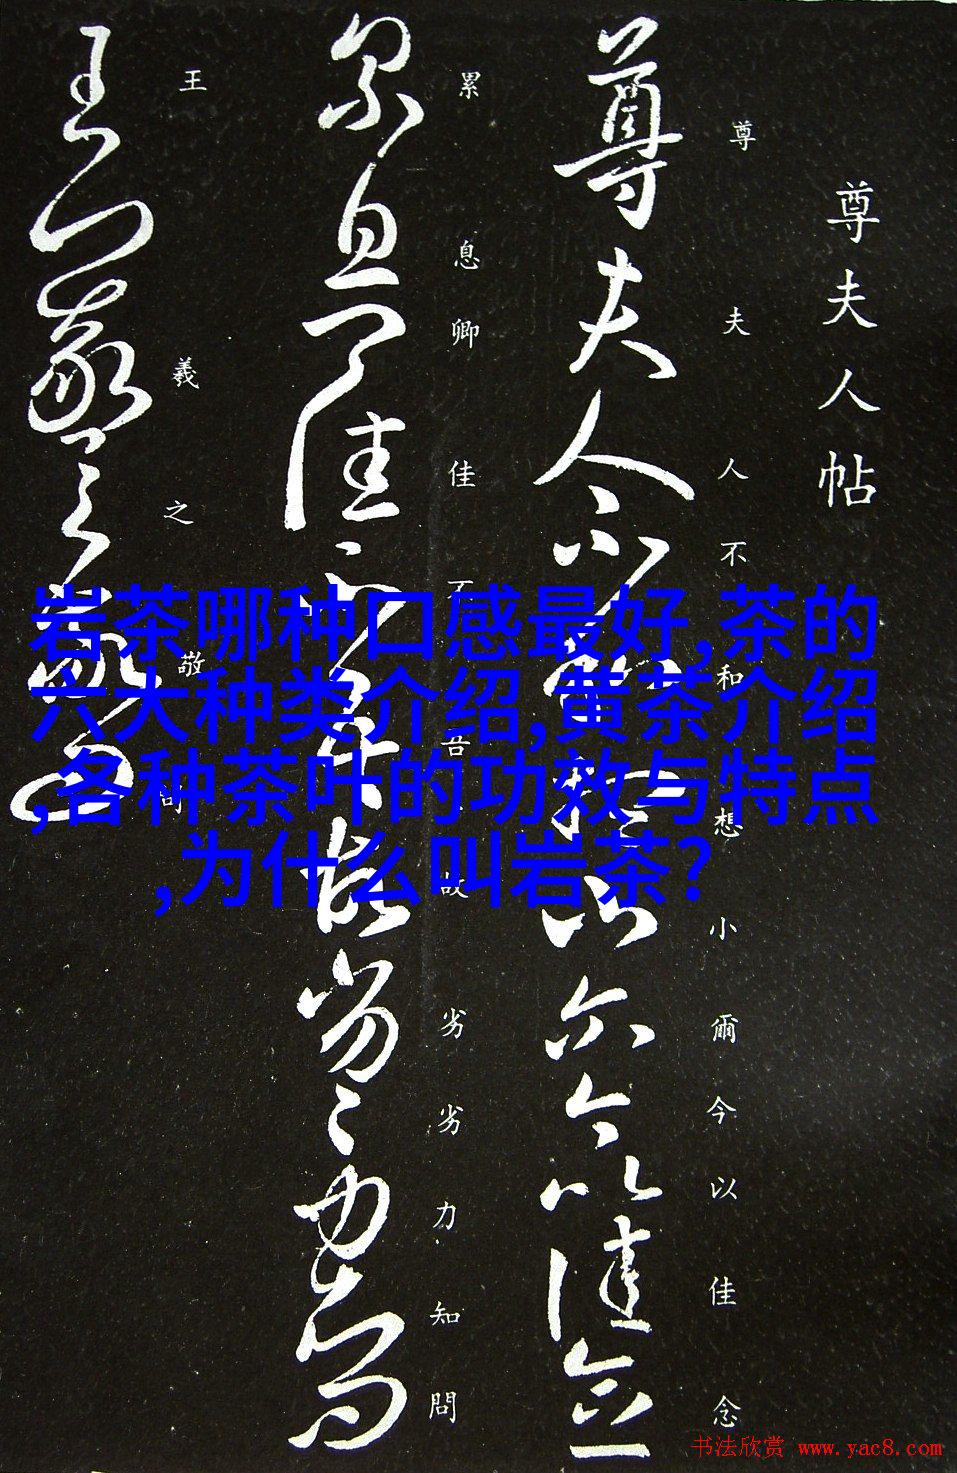 尊夫人帖
尊夫人不和想小爾今以佳念
累息卿佳不吾故劣劣力知問
王羲之敬問
岩茶哪种口感最好,茶的
六大种类介绍,黄茶介绍
,各种茶叶的功效与特点
,为什么叫岩茶?
书法欣赏 www.yac8.com